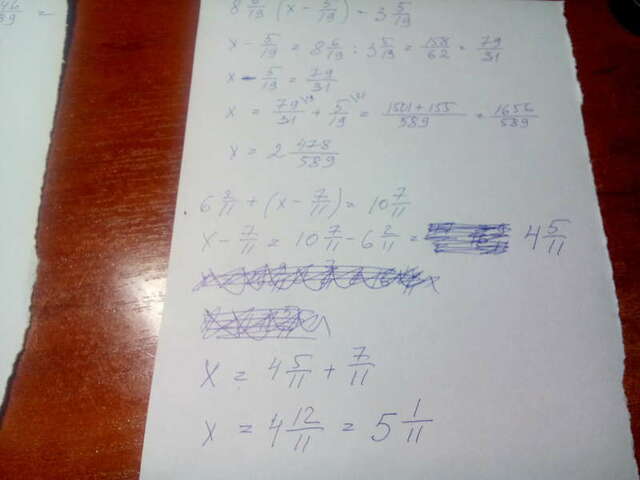 8 6/19 : (x - 5/19) = 3 5/19
x - 5/19 = 8 6/19 : 3 5/19 = 158/62 = 79/31
x - 5/19 = 79/31
x = 79/31 + 5/19 = 1501+155/589 = 1656/589
x = 2 478/589
6 2/11 + (x - 7/11) = 10 7/11
x - 7/11 = 10 7/11 - 6 2/11 = 4 5/11
x = 4 5/11 + 7/11
x = 4 12/11 = 5 1/11